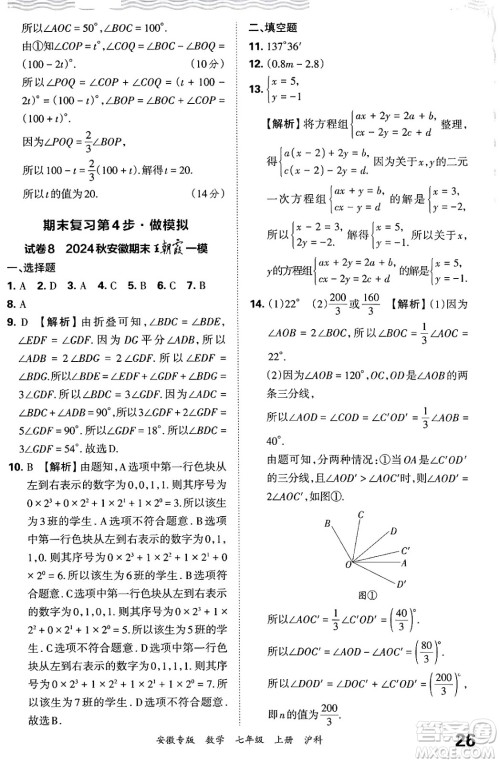 所以∠AOC = 50° + 50° = 100°.
由①知∠COP = t°, ∠BOQ = t°, ∠AOP =
(100 - 2t)°. (10分)
所以∠POQ = ∠COP + ∠COQ = (t + 100 -
2t)° = (100 - t)°.
因为∠POQ = 2/3∠AOP,
所以 100 - t = 2/3 × 120, 解得 t = 20.
所以 t 的值为 20. (14分)
期末复习第4步·做模拟
试卷8 2024秋安徽期末王朝霞一模
一、选择题
1. A 2. D 3. A 4. C 5. B 6. B 7. C
8. A
9. D 【解析】由折叠可知, ∠BDC = ∠BDE,
∠EDF = ∠GDF. 因为 DG 平分∠ADB, 所
以∠ADB = 2∠BDG. 因为∠ADB =
∠BDC, 所以∠BDE = 2∠BDG. 所以∠BDG =
∠GDE = 2∠GDF. 所以∠BDC =
2∠BDG = 4∠GDF. 所以∠BDC + ∠GDF =
5∠GDF = 90°. 所以∠GDF = 18°. 所以∠BDF =
3∠GDF = 54°. 故选 D.
10. B 【解析】由题知, A 选项中第一行色块从
左到右表示的数字为 0,0,1,1. 则其序号为
0 × 2³ + 0 × 2² + 1 × 2¹ + 1 × 2⁰ = 3. 所以该
生为 3 班的学生. A 选项不符合题意. B 选
项中第一行色块从左到右表示的数字为
0,1,1,0. 则其序号为 0 × 2³ + 1 × 2² + 1 ×
2¹ + 0 × 2⁰ = 6. 所以该生为 6 班的学生. B 选
项符合题意. C 选项中第一行色块从左到右
表示的数字为 0,1,0,1. 则其序号为 0 × 2³ +
1 × 2² + 0 × 2¹ + 1 × 2⁰ = 5. 所以该生为 5
班的学生. C 选项不符合题意. D 选项中第
一行色块从左到右表示的数字为 0,1,1,1.
则其序号为 0 × 2³ + 1 × 2² + 1 × 2¹ + 1 × 2⁰ =
7. 所以该生为 7 班的学生. D 选项不符合题
意. 故选 B.
二、填空题
11. 137°36′
12. (0.8m - 2.8)
13. { x = 5,
y = -1
【解析】将方程组 { ax + 2y = 2a + b,
cx + 2y = 2c + d 整理,
得 { a(x - 2) + 2y = b,
c(x - 2) + 2y = d. 因为关于 x, y 的二元
所以关于 x,
y 的方程组 { ax + 2y = 2a + b,
cx + 2y = 2c + d 的解为 { x = 5,
y = -1.
14. (1)22° (2)200/3 或 160/3 【解析】(1)因为
∠AOB = 2∠BOC, 所以∠BOC = 1/3∠AOC =
22°.
(2)因为∠AOB = 120°, OC, OD 是∠AOB 的两条
三分线,
所以∠AOD = ∠COD = ∠BOC = 1/3∠AOB =
40°.
由题可知, 分两种情况: ①当 OA 是∠C′OD′ 的
三分线, 且∠AOD′ > ∠AOC′ 时, ∠AOD′ =
2∠AOC′, 如图①.
C
D
B
C′
O
A
D′
图①
所以∠AOC′ = 1/3∠C′OD′ = (40/3)°.
所以∠DOC′ = ∠AOD - ∠AOC′ = (80/3)°.
所以∠DOD′ = ∠DOC′ + ∠C′OD′ = (200/3)°,
安徽专版 数学 七年级 上册 沪科
26